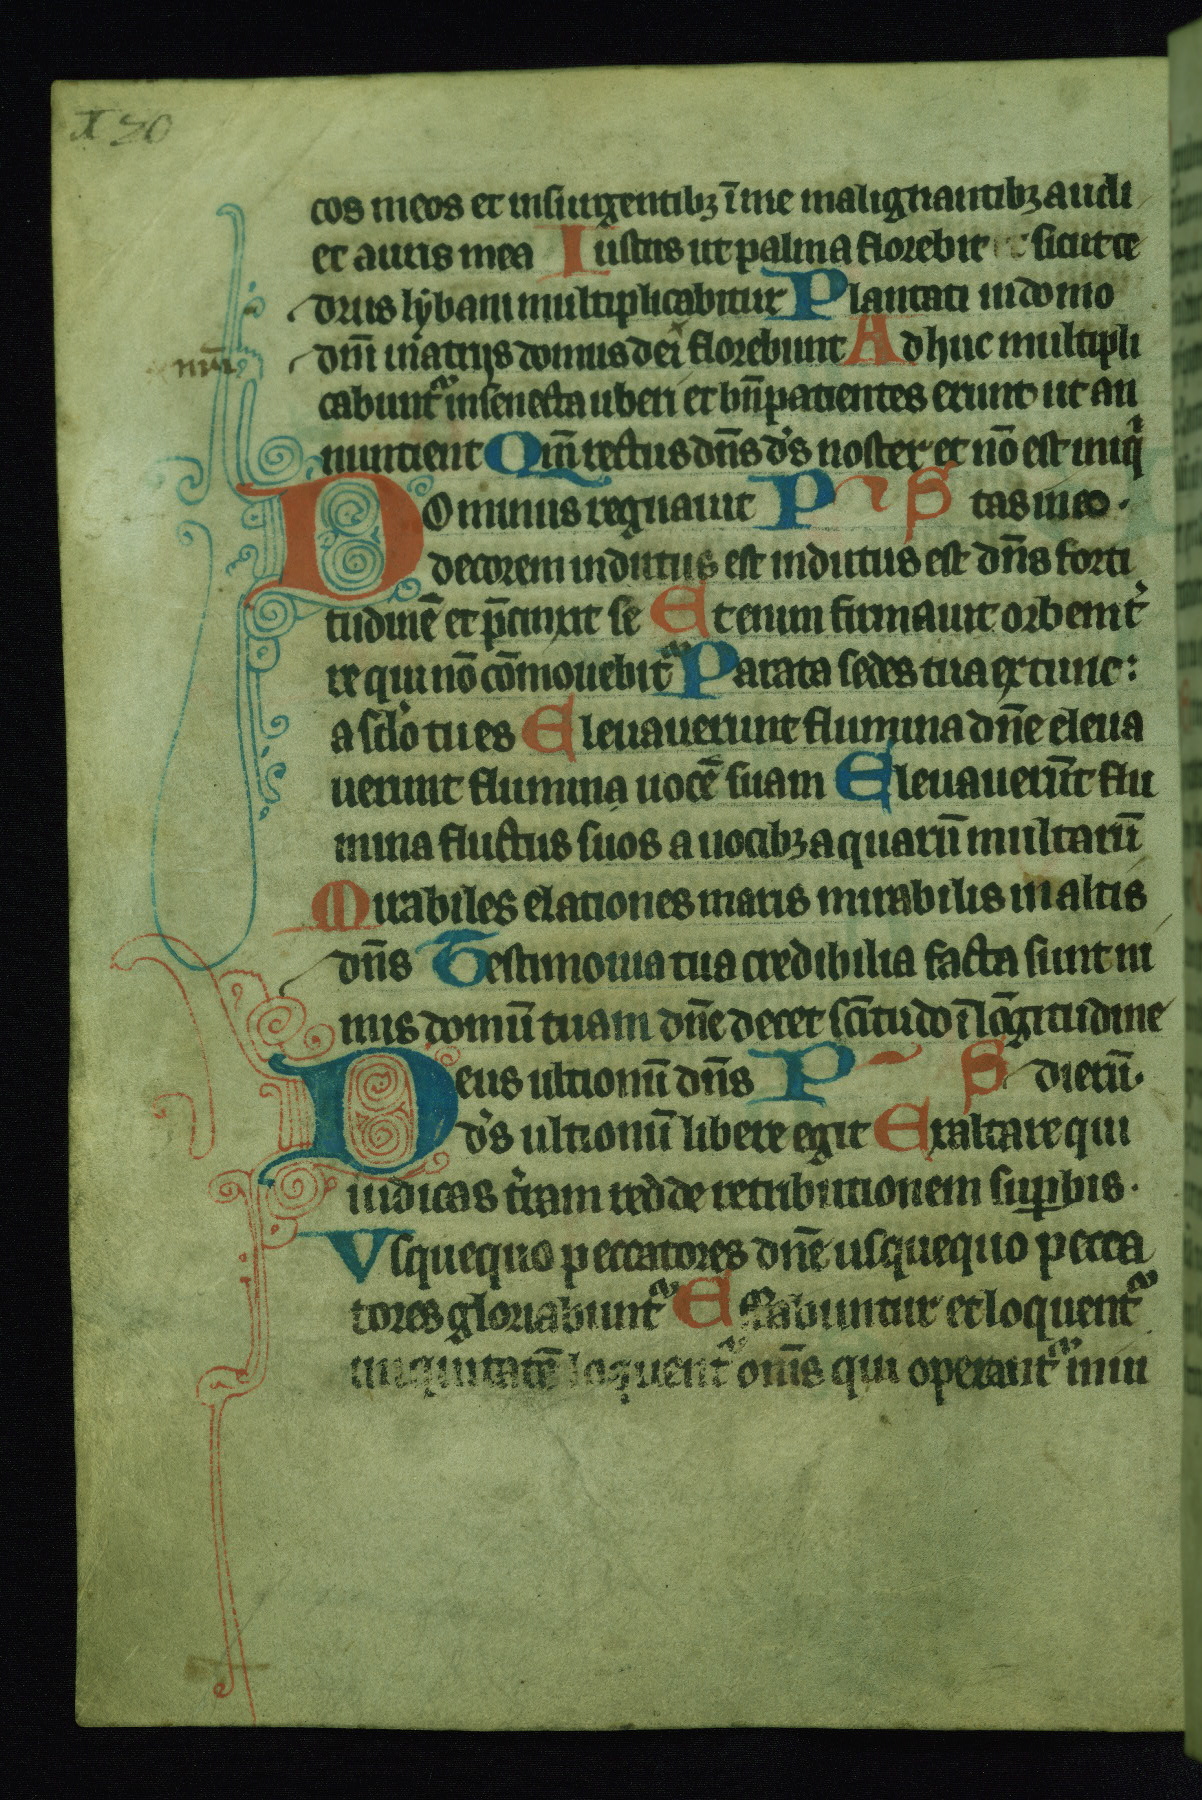 cos meos et insurgentibꝫ ī me malignantibꝫ audi
et auris mea Iustus ut palma florebit sicut ce
drus lybani multiplicabitur Plantati in domo
dn̄i in atrijs domus dei florebunt Adhuc multipli
cabunt᷑ in senecta uberi et bn̄ patientes erunt ut an
nuntient Qm̄ rectus dn̄s d's noster et nō est iniq̇
Dominus regnauit P S tas in eo.
decorem indutus est indutus est dn̄s forti
tudinē et p̄cinxit se Etenim firmauit orbem t'
re qui nō cōmouebit᷑ Parata sedes tua ex tunc:
a sclo tu es Eleuauerunt flumina dn̄e eleua
uerunt flumina uocē suam Eleuauerūt flu
mina fluctus suos a uocibꝫ aquarū multarū
Mirabiles elationes maris mirabilis in altis
dn̄s Testimonia tua credibilia facta sunt ni
mis domū tuam dn̄e decet scītudo ī lōgitudine
Deus ultionū dn̄s P S dierū.
d's ultionū libere egit Exaltare qui
iudicas t'ram redde retributionem suꝑbis.
Vsquequo peccatores dn̄e usquequo pecca
tores gloriabunt᷑ Effabuntur et loquent᷑
iniquitatē loquent᷑ om̄s qui operant᷑ iniu